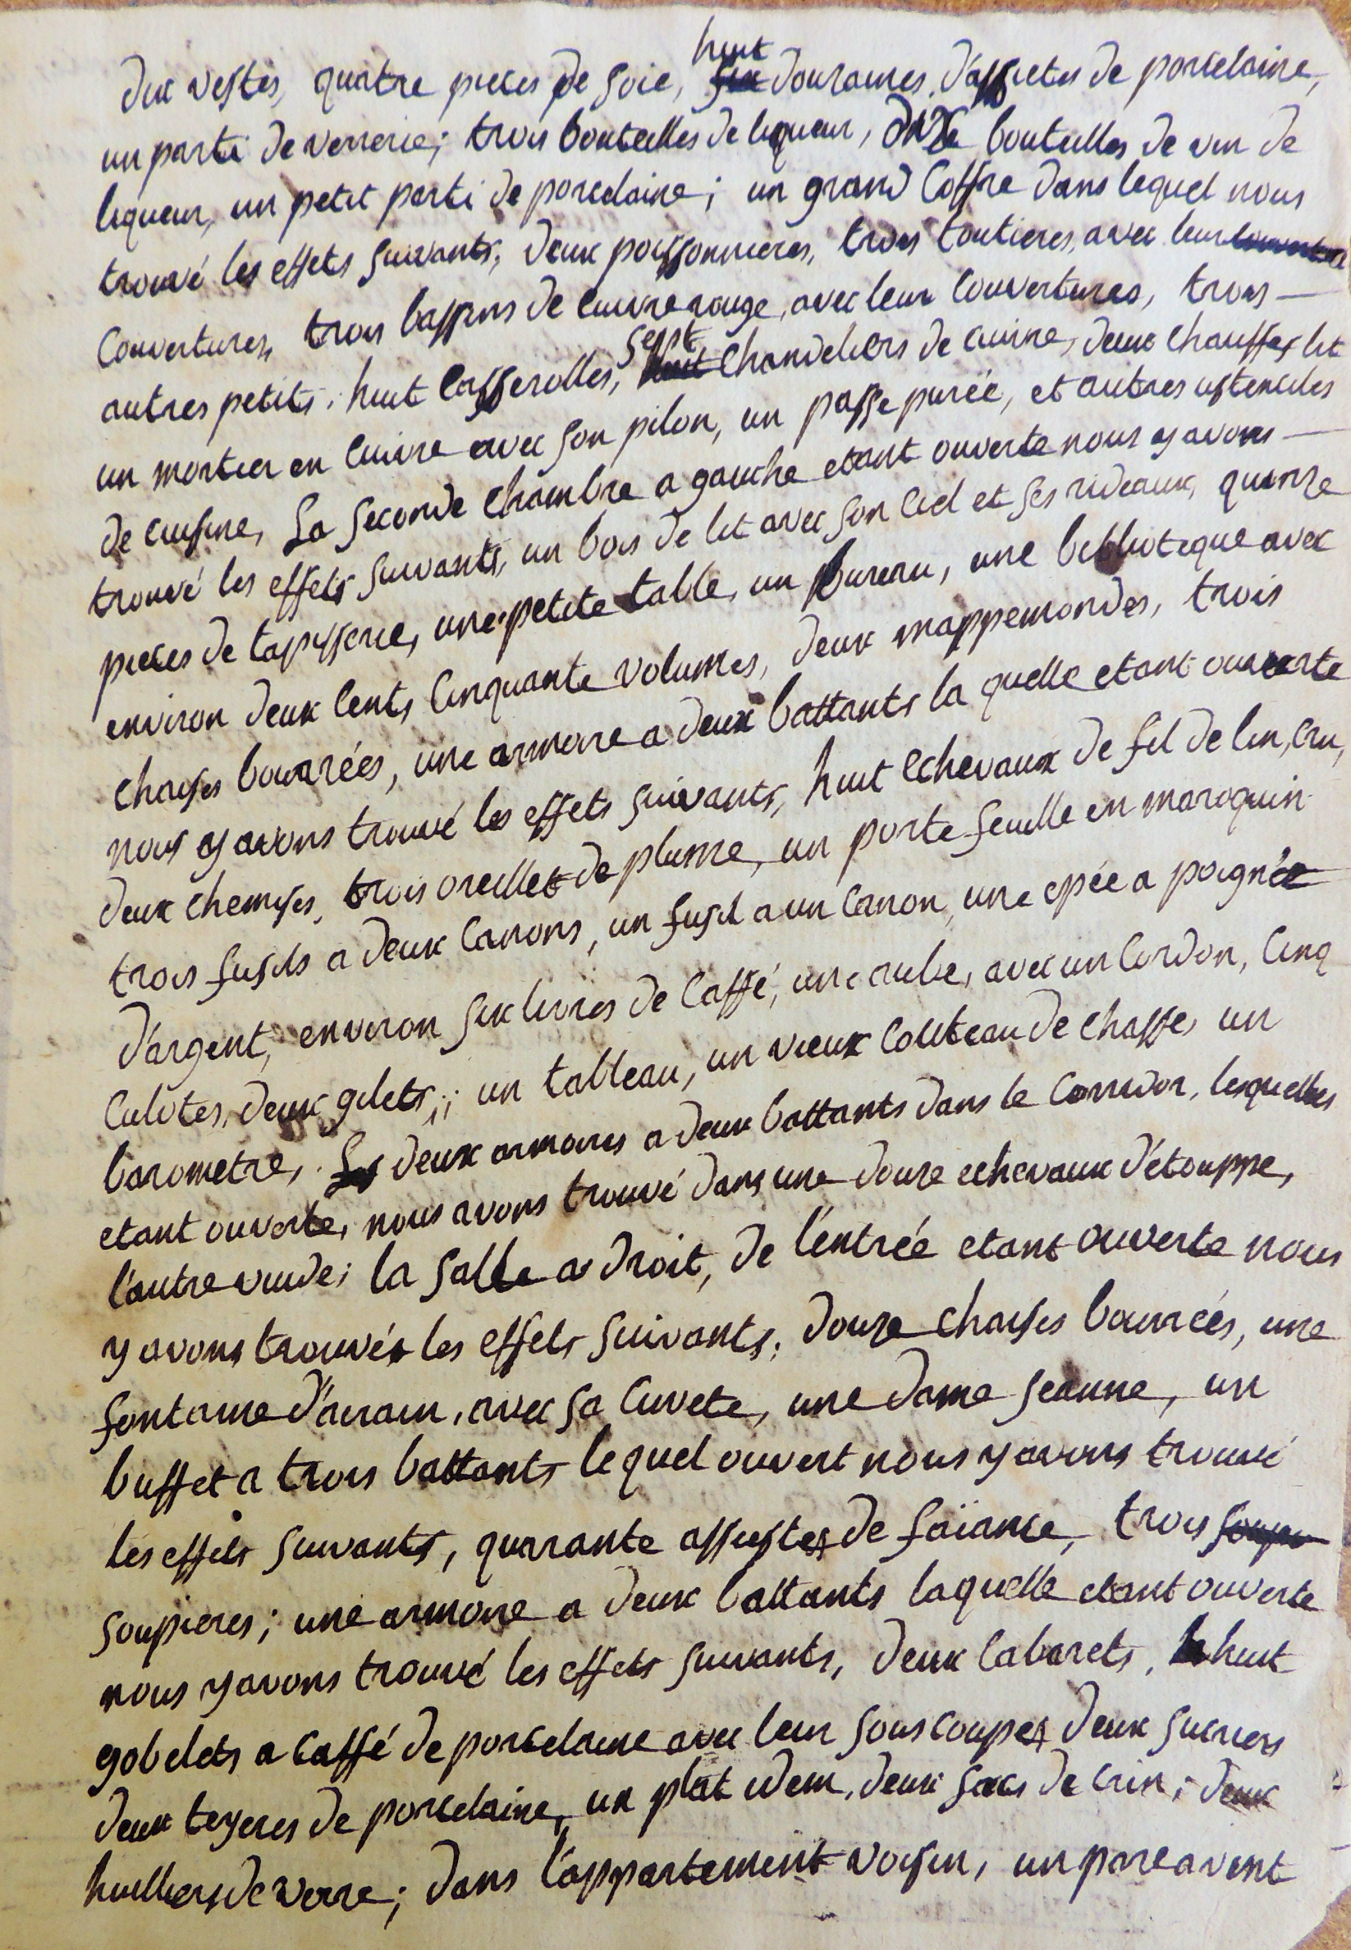 dix vestes, quatre pieces de soie, huit douzaines d'assietes de porcelaine,
un parti de verrerie; trois bouteilles de liqueur, onze bouteilles de vin de
liqueur, un petit parti de porcelaine; un grand Coffre dans lequel nous
trouvé les effets suivants, deux poissonnieres, trois toutieres, avec leur couvertur
Couvertures, trois bassins de Cuivre rouge, avec leur Couvertures, trois
autres petits, huit Casserolles, sept huit Chandeliers de cuivre, deux chauffes lit
un mortier en Cuivre avec son pilon, un passe purée, et autres ustenciles
de cuisine, La seconde Chambre a gauche etant ouverte nous y avons
trouvé les effets suivants, un bois de lit avec son Ciel et ses rideaux, quinze
pieces de tapisserie, une petite table, un bureau, une biblioteque avec
environ deux Cents Cinquante volumes, deux mappemondes, trois
Chaises bourrées, une armoire a deux battants la quelle etant ouverte
nous y avons trouvé les effets suivants, huit echevaux de fil de lin, cru,
deux chemises, trois oreillets de plume, un porte feuille en maroquin
trois fusils a deux Canons, un fusil a un Canon, une epée a poignée
d'argent, environ six livres de Caffé, une aube, avec un Cordon, Cinq
Culotes, deux gilets,; un tableau, un vieux Couteau de chasse, un
barometre, Les deux armoires a deux battants dans le Corridor, lesquelles
etant ouverte, nous avons trouvé dans une douze echevaux d'étouppe,
l'autre vuide; la Salle a droit, de l'entrée etant ouverte nous
y avons trouvés les effets suivants, douze chaises bourrées, une
fontaine d'airain, avec sa Cuvete, une dame jeanne, un
buffet a trois battants lequel ouvert nous y avons trouvé
les effets suivants, quarante assiestes de faïance, trois
soupieres; une armoire a deux battants laquelle etant ouverte
nous y avons trouvé les effets suivants, deux Cabarets, huit
gobelets a Caffé de porcelaine avec leur sous coupes deux sucriers
deux teyeres de porcelaine, un plat idem, deux sacs de Crin; deux
huilliers de verre; dans l'appartement voisin, un pare avent